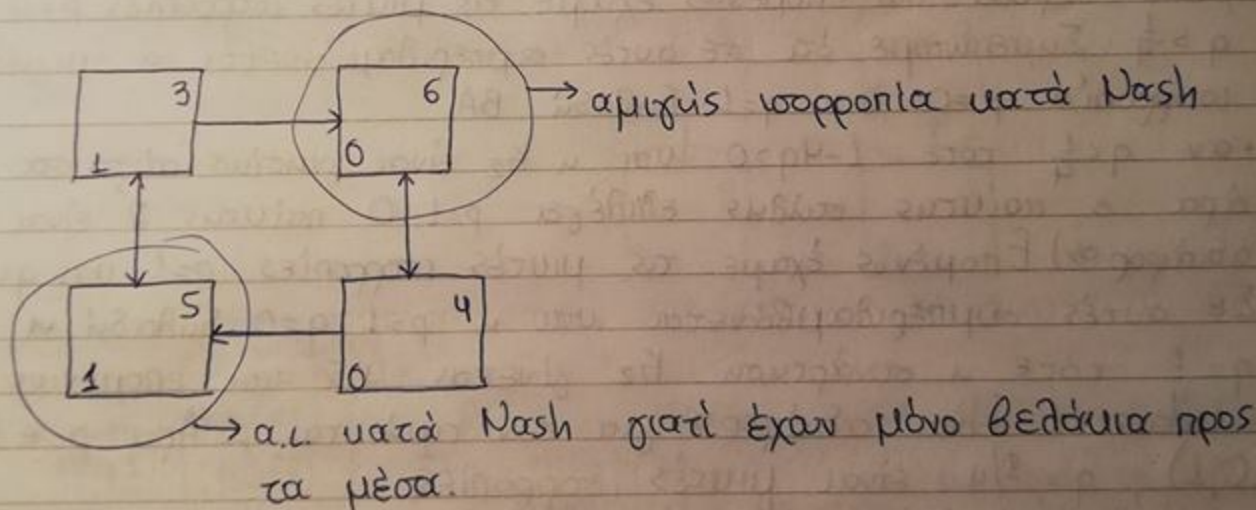 3
6
→ αμιγής ισορροπία κατά Nash
1
0
5
4
1
0
→ α.ι. κατά Nash γιατί έχουν μόνο βελάκια προς
τα μέσα.